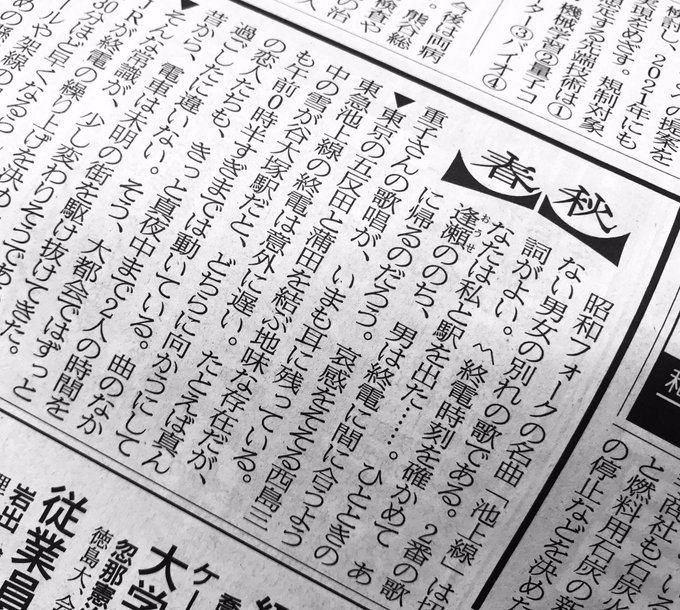 春秋
昭和フォークの名曲「池上線」は切
ない男女の別れの歌である。2番の歌
詞がよい。〽終電時刻を確かめて あ
なたは私と駅を出た……。ひとときの
逢瀬ののち、男は終電に間に合うよう
おうせ
に帰るのだろう。哀感をそそる西島三
重子さんの歌唱が、いまも耳に残っている。
▼東京の五反田と蒲田を結ぶ地味な存在だが、
東急池上線の終電は意外に遅い。たとえば真ん
中の雪が谷大塚駅だと、どちらに向かうにして
も午前0時半すぎまでは動いている。曲のなか
の恋人たちも、きっと真夜中まで2人の時間を
過ごしたに違いない。そう、大都会ではずっと
昔から、電車は未明の街を駆け抜けてきた。
▼そんな常識が、少し変わりそうであ
JRが終電の繰り上げを決め
30分ほど早くなるら
ールや架線の
の提案を
検討し、2021年にも
実現をめざす。規制対象
する先端技術は①
機械学習②量子コ
ター③バイオ④
今後は両病
熊谷総
検査や
の治
商社も石炭火
と燃料用石炭の新
の停止などを決めた
大学
徳島大、会
忽那憲
従業員
岩出